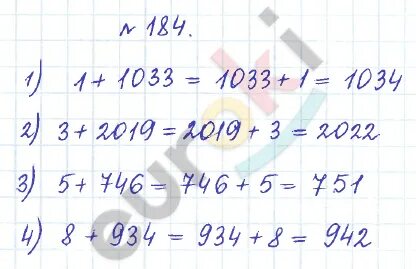 № 184.
1) 1 + 1033 = 1033 + 1 = 1034
2) 3 + 2019 = 2019 + 3 = 2022
3) 5 + 746 = 746 + 5 = 751
4) 8 + 934 = 934 + 8 = 942
euroki